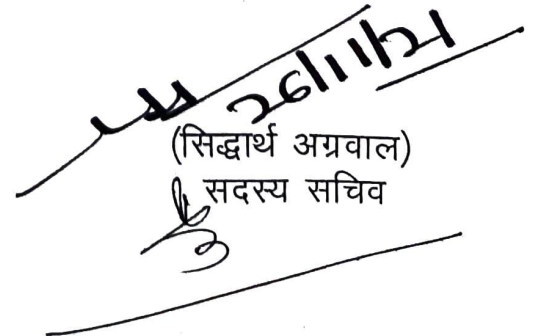 26/11/21
(सिद्धार्थ अग्रवाल)
सदस्य सचिव